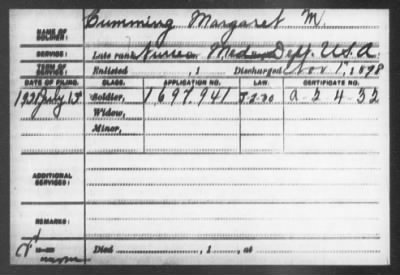 Cumming Margaret M.
NAME OF SOLDIER:
SERVICE: Late rank Nurse Med Dept. U.S.A.
TERM OF SERVICE: Enlisted , 1 Discharged Nov 1, 1898
DATE OF FILING. CLASS. APPLICATION NO. LAW. CERTIFICATE NO.
1931 July 15 Soldier, 1697.941 J-2-30 a-2-4-32
Widow,
Minor,
ADDITIONAL SERVICES:
REMARKS:
Died , 1 , at